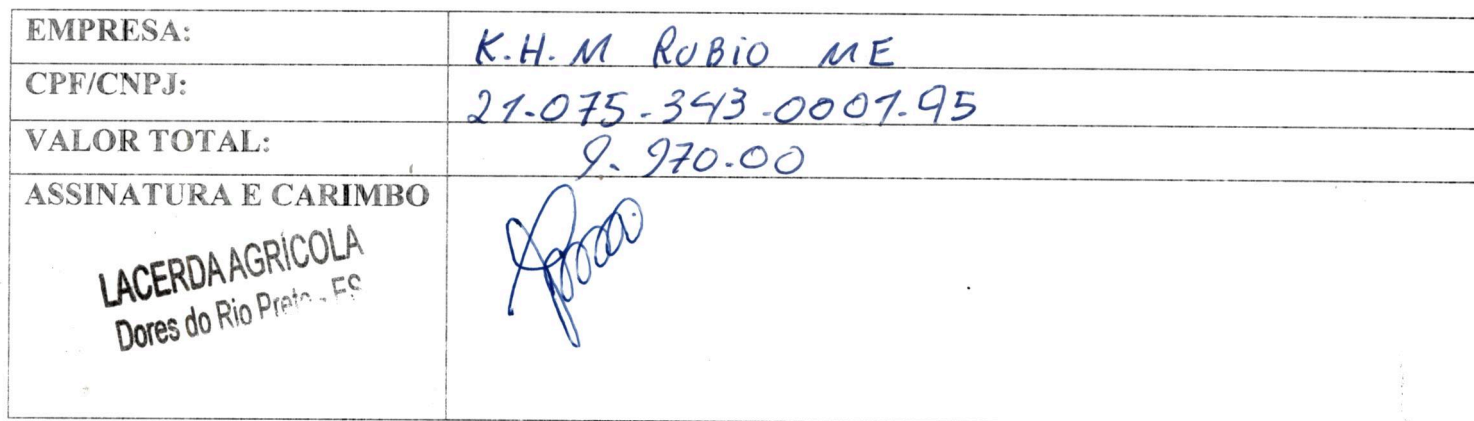 EMPRESA: K.H.M RUBIO ME
CPF/CNPJ: 21-075-343-0001-95
VALOR TOTAL: 9.970.00
ASSINATURA E CARIMBO
LACERDA AGRÍCOLA
Dores do Rio Preto - ES